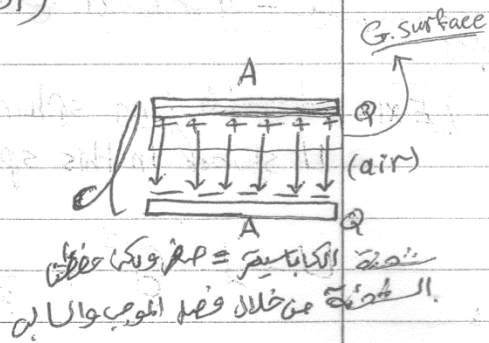 G. surface
A
+ + + + + +
Q
d
(air)
A
Q
شحنة الكاباسيتر = صفر ولكن حفظت
الشحنة من خلال فصل الموجب والسالب